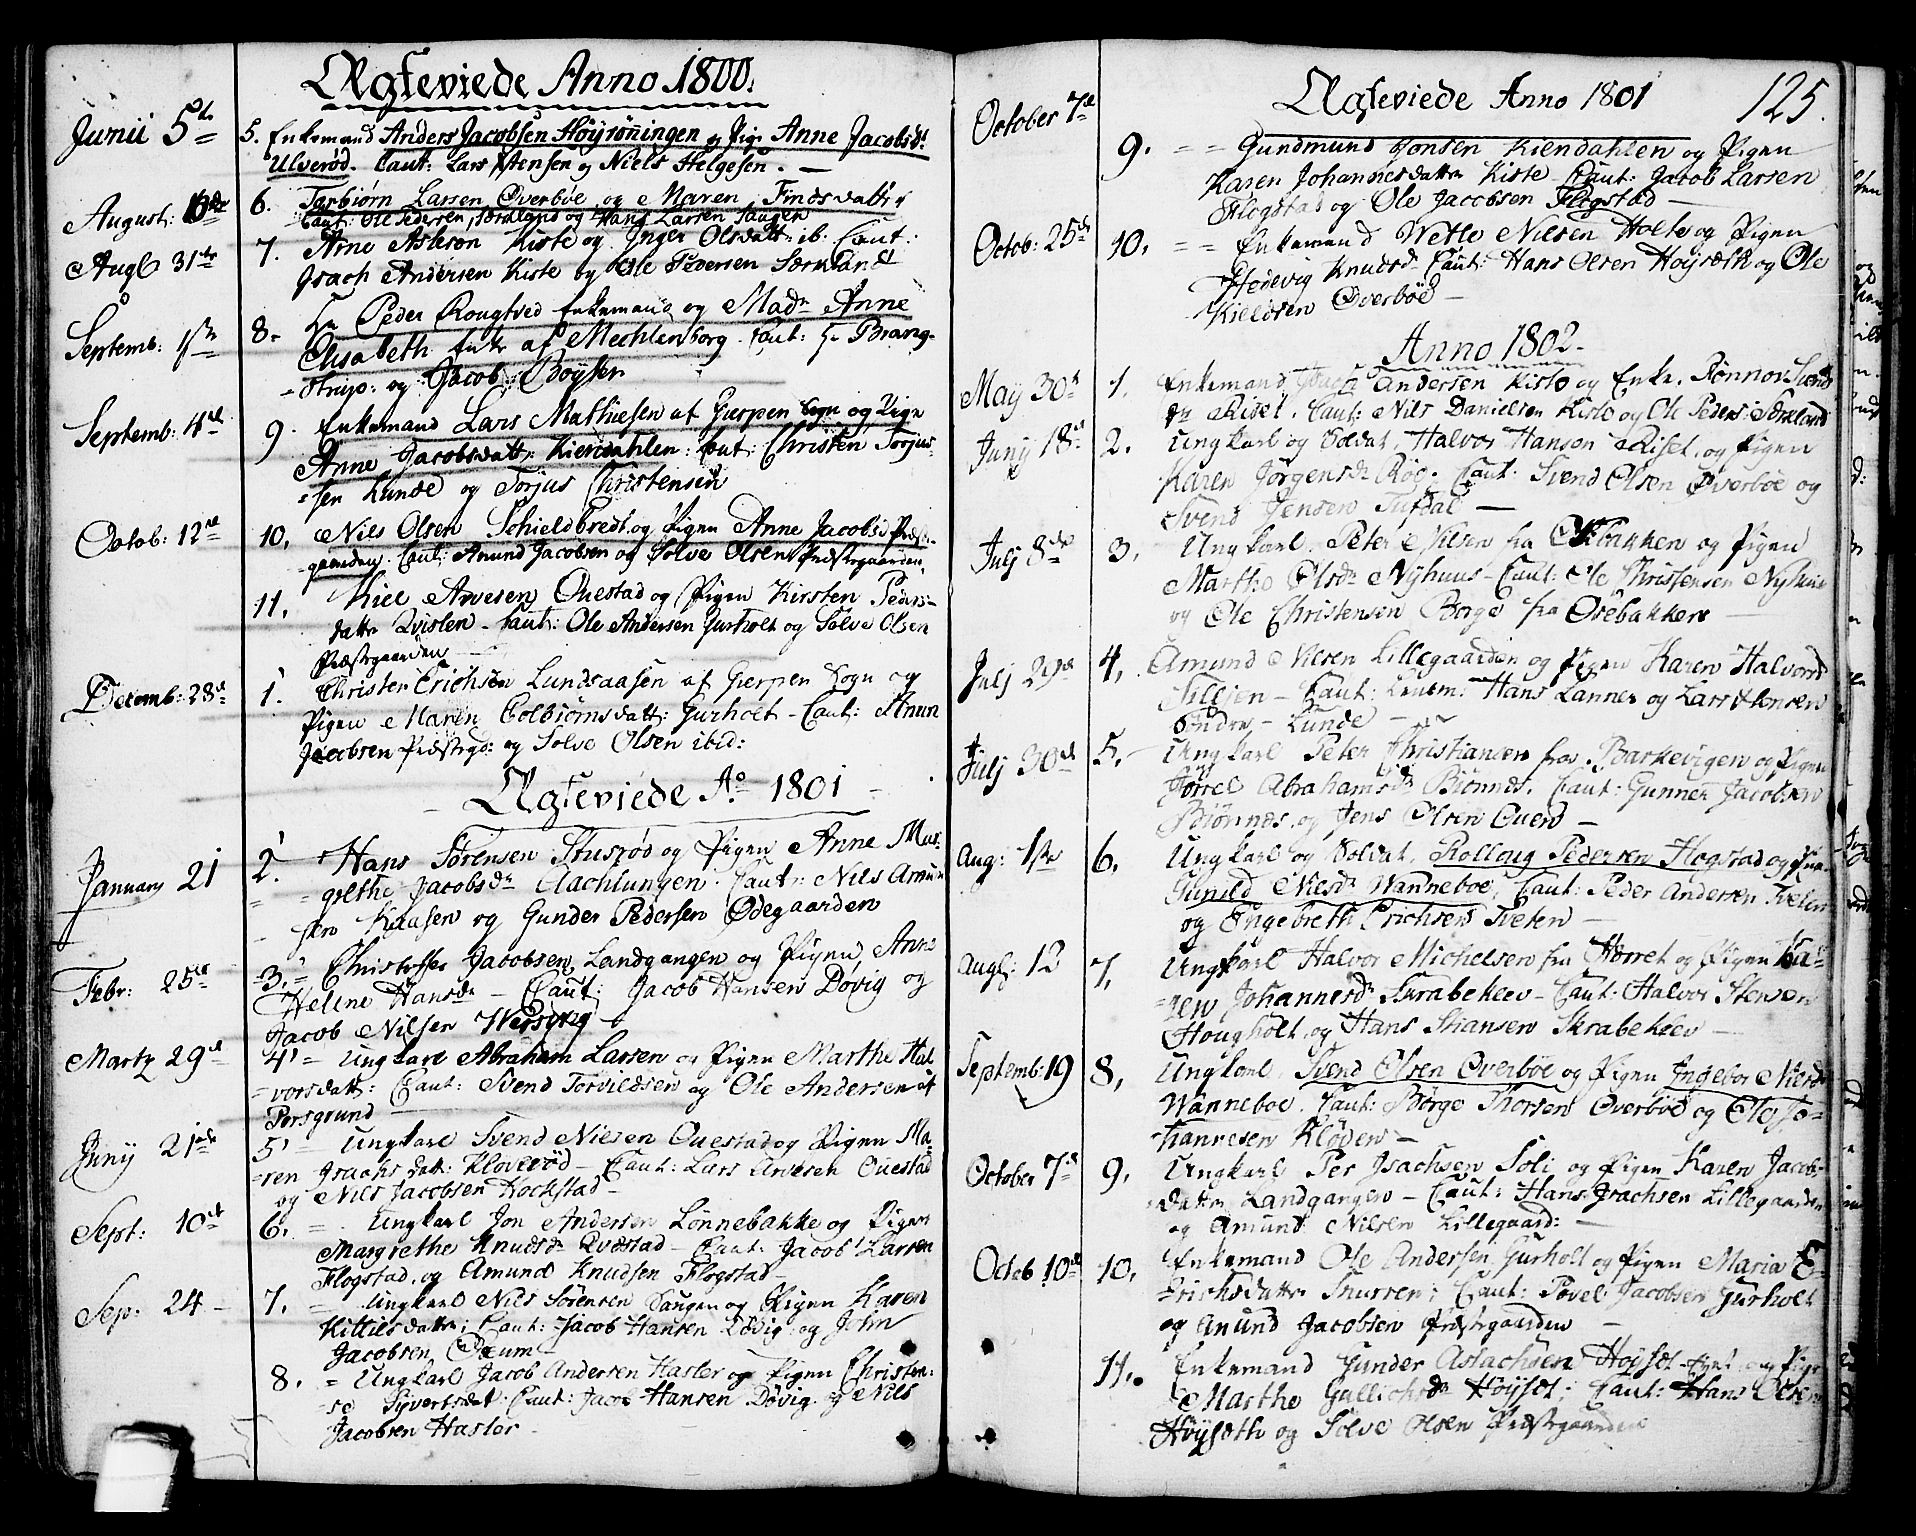 Ægteviede Anno 1800.
Junii 5te 5. Enkemand Anders Jacobsen Höyröningen og Pige Anne Jacobsdr:
Ulveröd. Caut: Lars Stensen og Niels Helgesen. —
August: 6. Torbiørn Larsen Øverböe og Maren Findsdatter
Caut: Ole Pedersen Særkland og Hans Larsen Saugen
Augt 31te 7. Arne Aslesön Kiste og Inger Olsdatt: ib: Caut:
Isach Andersen Kiste og Ole Pedersen Særkland
Septemb: 1ste 8. Hr Peder Rougtved Enkemand og Made Anne
Elisabeth Enke af Mechlenborg. Caut: Hr Brang-
strup: og Jacob Boysen
Septemb: 4de 9. Enkemand Lars Mathiesen af Gierpen Sogn og Pige
Anne Jacobsdattr Kiendahlen: Caut: Christen Torjus-
sen Lunde og Torjus Christensen
Octob: 12te 10. Nils Olsen Schieldbredt og Pigen Anne Jacobsd Præste-
gaarden. Caut: Anund Jacobsen og Solve Olsen Præstegaarden.
11. Kiel Arvesen Ouestad og Pigen Kirsten Peders-
datter Qvisten. Caut: Ole Andersen Gurholt og Solve Olsen
Præstegaarden
Decemb: 28de 1. Christen Erichsen Lundsaasen af Gierpen Sogn og
Pigen Maren Colbiörnsdatt: Gurholt — Caut: Anun
Jacobsen Præstegd: og Solve Olsen ibid:
Ægteviede Ao 1801
January 21 2. Hans Sörensen Stusröd og Pigen Anne Mar-
grethe Jacobsdr Aachlungen. Caut: Nils Amun
sen Kaasen og Gunder Pedersen Ødegaarden
Febr: 25de 3. Christoffer Jacobsen Landgangen og Pigen Anne
Helene Hansdr — Caut: Jacob Hansen Dövig og
Jacob Nilsen Versvig —
Martz 29de 4. Ungkarl Abraham Larsen og Pigen Marthe Hal
vorsdatt: Caut: Svend Torvildsen og Ole Andersen af
Porsgrund
Juny 21de 5. Ungkarl Svend Nielsen Ouestad og Pigen Ma-
ren Isachsdatt: Kloveröd — Caut: Lars Arvesen Ouestad
og Nils Jacobsen Kockstad —
Sept: 10de 6. Ungkarl Jon Andersen Lönnebakke og Pigen
Margrethe Knudsdr Qvestad — Caut: Jacob Larsen
Flogstad, og Amund Knudsen Flogstad —
Sep: 24 7. Ungkarl Nils Sörensen Saugen og Pigen Karen
Kittilsdatter; Caut: Jacob Hansen Dövig og John
Jacobsen Oxum —
8. Ungkarl Jacob Andersen Hasler og Pigen Christen-
se Syvertsdat. Caut: Jacob Hansen Dövig. og Nils
Jacobsen Hasler —
Ægteviede Anno 1801 125.
October 7de 9. Gundmund Jonsen Kiendahlen og Pigen
Karen Johannesdatter Kiste — Caut: Jacob Larsen
Flogstad og Ole Jacobsen Flogstad —
Octob: 25de 10. Enkemand Wetle Nilsen Holte og Pigen
Hedevig Knudsd. Caut: Hans Olsen Höyseth og Ole
Kieldsen Øverböe —
Anno 1802.
May 30te 1. Enkemand Isach Andersen Kiste og Enke. Rönnov Svends
dr Riset. Caut: Nils Danielsen Kiste og Ole Peders: Sörkland
Juny 18de 2. Ungkarl og Soldat, Halvor Hanson Riset, og Pigen
Karen Jörgensdr Röe. Caut: Svend Olsen Øverböe og
Svend Jensen Tufdal —
July 8de 3. Ungkarl, Peter Nilsen fra Osebakken og Pigen
Marthe Olsdr Nyhuus — Caut: Ole Christensen Nyhuus
og Ole Christensen Borge fra Osebakken —
July 29de 4. Amund Nilsen Lillegaarden og Pigen Karen Halvorsd
Tilljen — Caut: Leutn: Hans Lannes og Lars Stensen
Söndre — Lunde —
July 30de 5. Ungkarl Peter Christiansen fra Barkevigen og Pigen
Jörrel Abrahamsdr Biönnes. Caut: Gunner Jacobsen
Biönnes, og Jens Olsen Ouerö —
Aug: 1ste 6. Ungkarl og Soldat, Rollaug Pedersen Flogstad og Pigen
Gunild Nielsdr Wanneboe, Caut: Peder Andersen Tveten
og Engebreth Erichsen Tveten —
Augt: 12 7. Ungkarl Halvor Michelsen fra Herret og Pigen Ka-
ren Johannesdr Skrabeklev — Caut: Halvor Stensen
Hougholt, og Hans Hansen Skrabeklev —
Septemb: 19 8. Ungkarl, Svend Olsen Overböe og Pigen Ingebor Nielsd
Wanneboe. Caut: Börge Thorsen Overböe og Ole Jo-
hannesen Klöden —
October 7de 9. Ungkarl Per Isachsen Soli og Pigen Karen Jacobs-
datter Landgangen — Caut: Hans Isachsen Lillegaarden
og Amund Nilsen Lillegaard: —
Octob 10de 10. Enkemand Ole Andersen Gurholt og Pigen Maria E-
richsdatter Snurren; Caut: Povel Jacobsen Gurholt
og Anund Jacobsen Præstegaarden —
11. Enkemand Gunder Aslachsen Höyset og Pige
Marthe Gullichsdr Höyset; Caut: Hans Olsen
Höyseth og Solve Olsen Præstegaarden